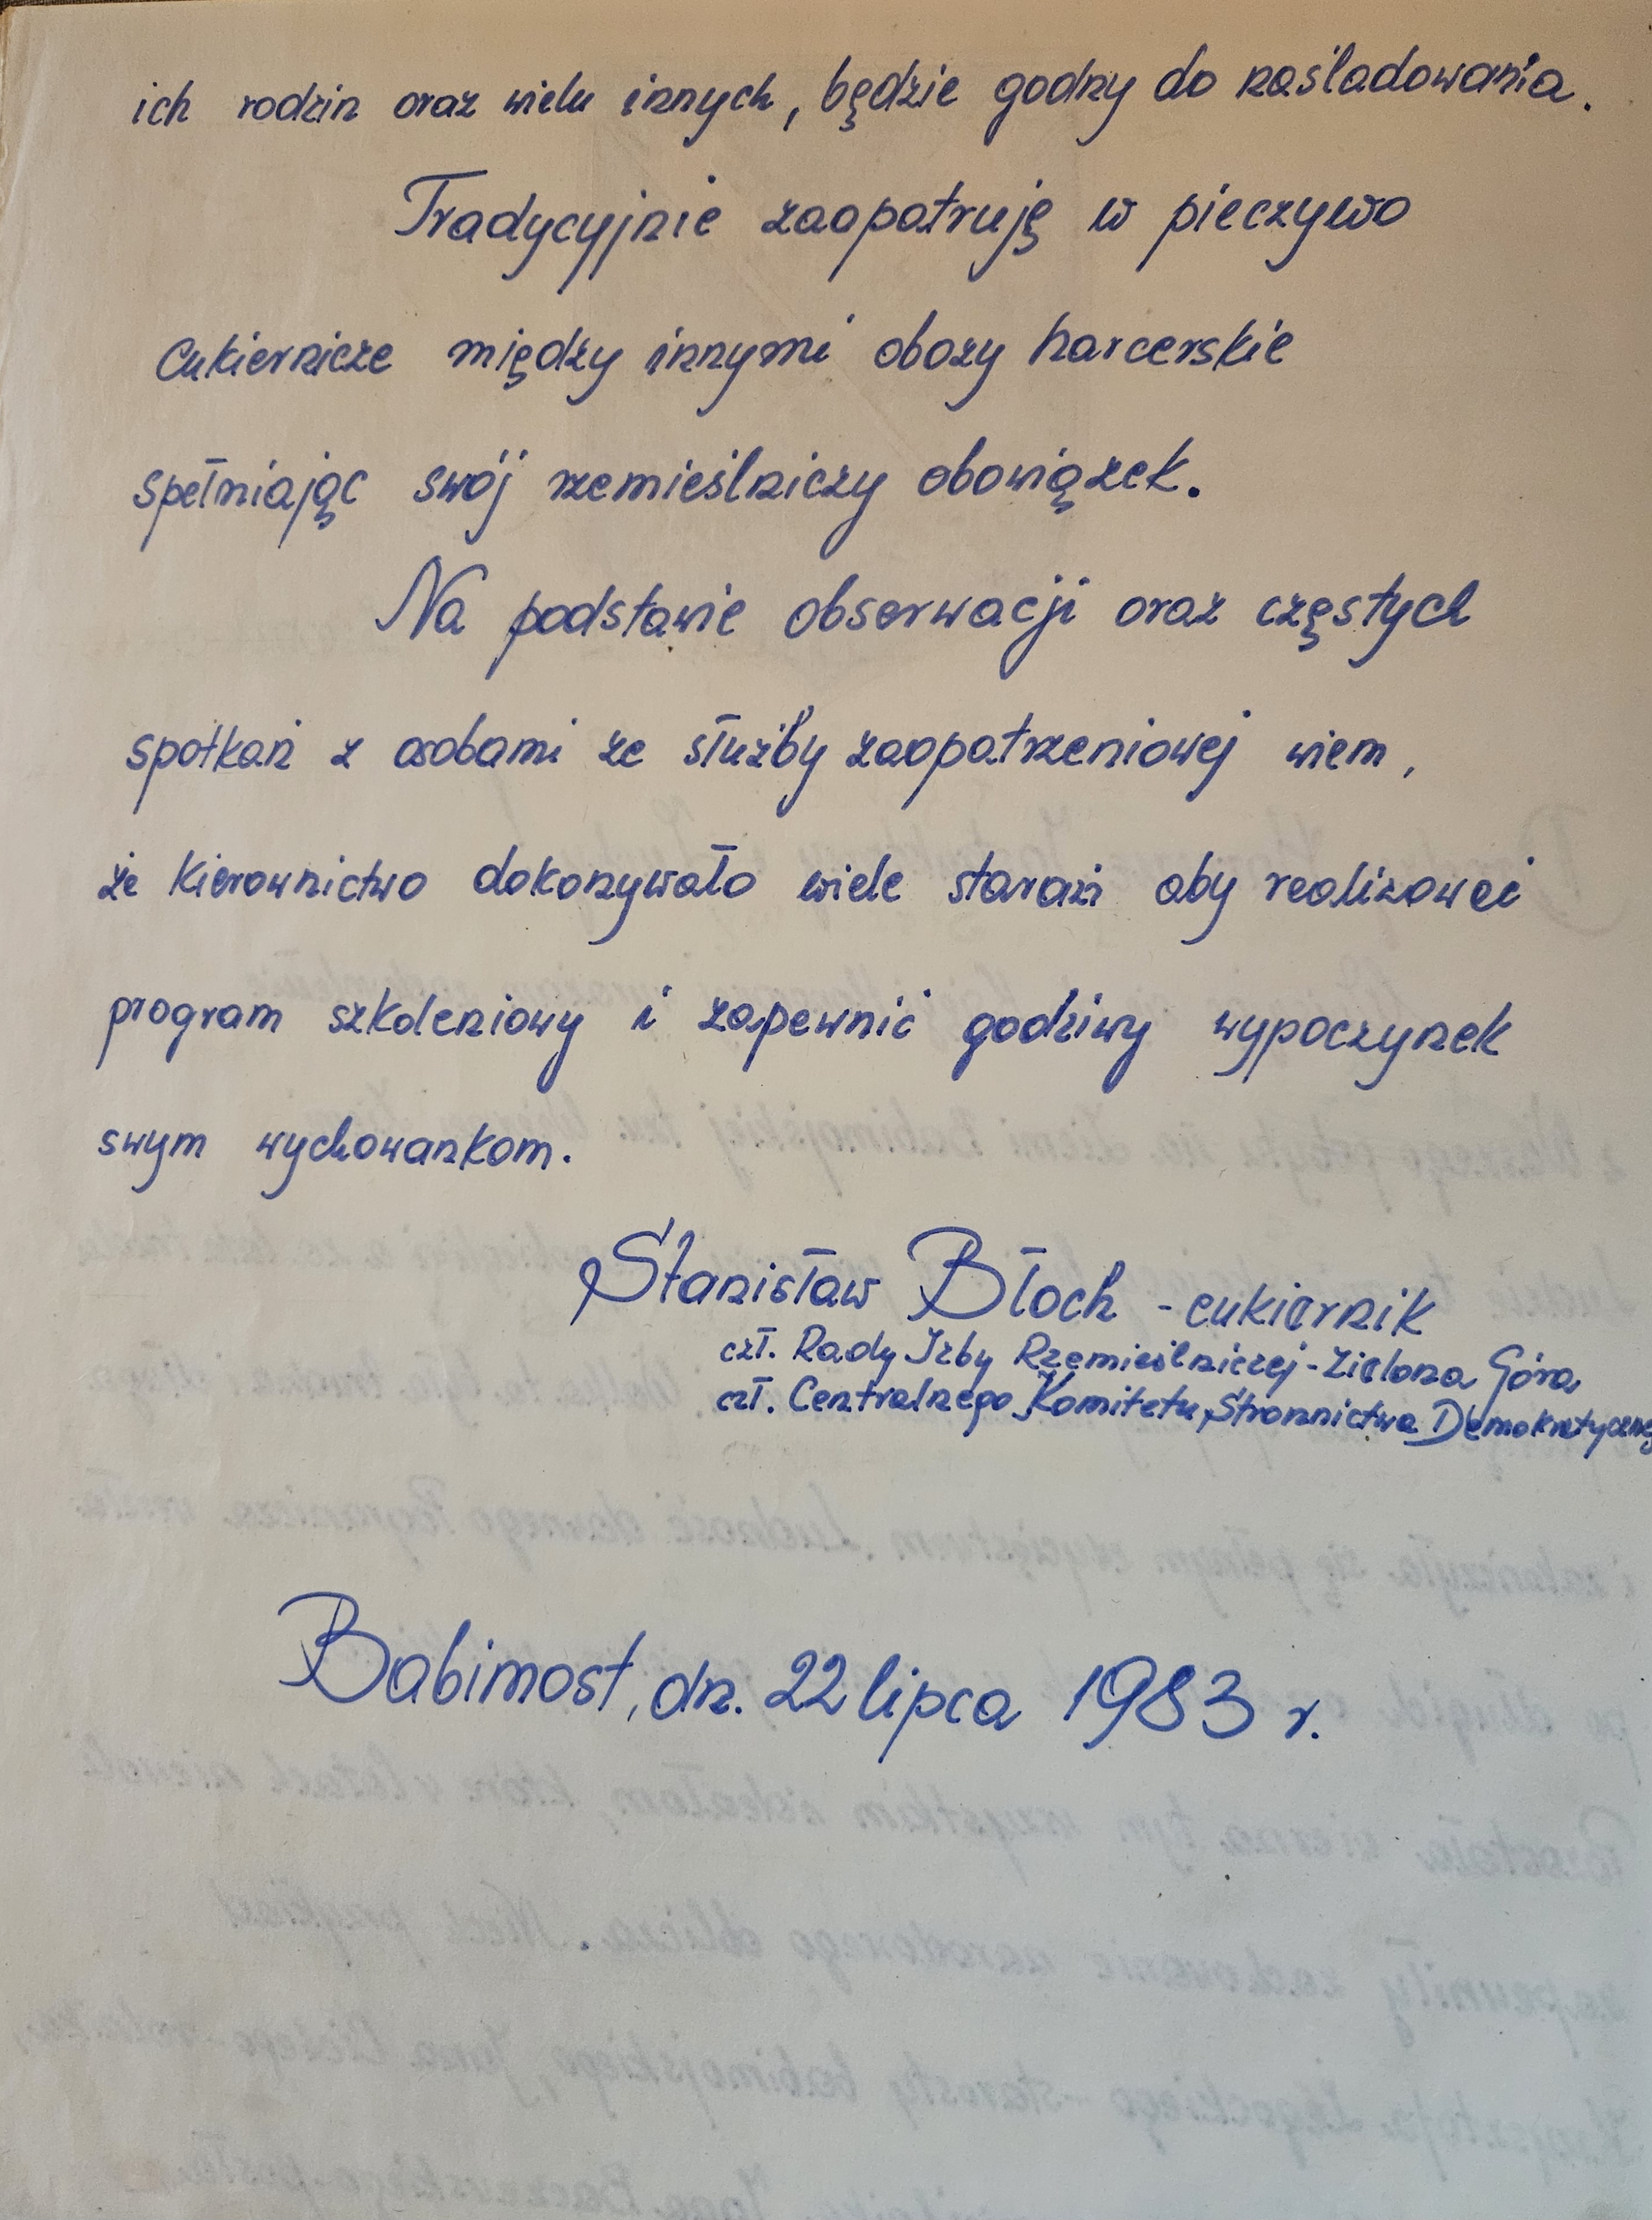 ich rodzin oraz wielu innych, będzie godny do naśladowania.
Tradycyjnie zaopatruję w pieczywo
cukiernicze między innymi obozy harcerskie
spełniając swój rzemieślniczy obowiązek.
Na podstawie obserwacji oraz częstych
spotkań z osobami ze służby zaopatrzeniowej wiem,
że kierownictwo dokonywało wiele starań aby realizować
program szkoleniowy i zapewnić godziwy wypoczynek
swym wychowankom.
Stanisław Błoch - cukiernik
czł. Rady Izby Rzemieślniczej - Zielona Góra
czł. Centralnego Komitetu Stronnictwa
Babimost, dn. 22 lipca 1983 r.